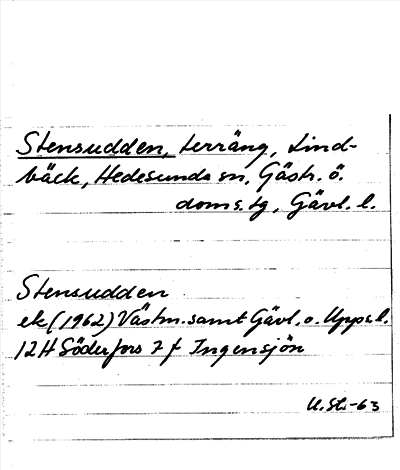 Stensudden, terräng, Lind-
bäck, Hedesunda sn, Gästr. ö.
doms.tg, Gävl. l.
Stensudden
ek (1962) Västm. samt Gävl. o. Upps. l.
12H Söderfors 7 f Ingensjön
U.St.-63